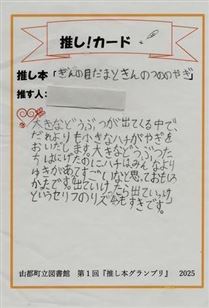 推し！カード
推し本「ぎんの目だまときんのつののやぎ」
推す人：
大きなどうぶつが出てくる中で、
だれよりも小さなハチがやぎを
おいだします。大きなどうぶつた
ちはにげたのにハチはみんなより
ゆうきがあてすごいなと思ておもしろ
かたです。出ていけたら出ていけ！
というセリフのリズムもすきです。
山都町立図書館　第1回『推し本グランプリ』　2025